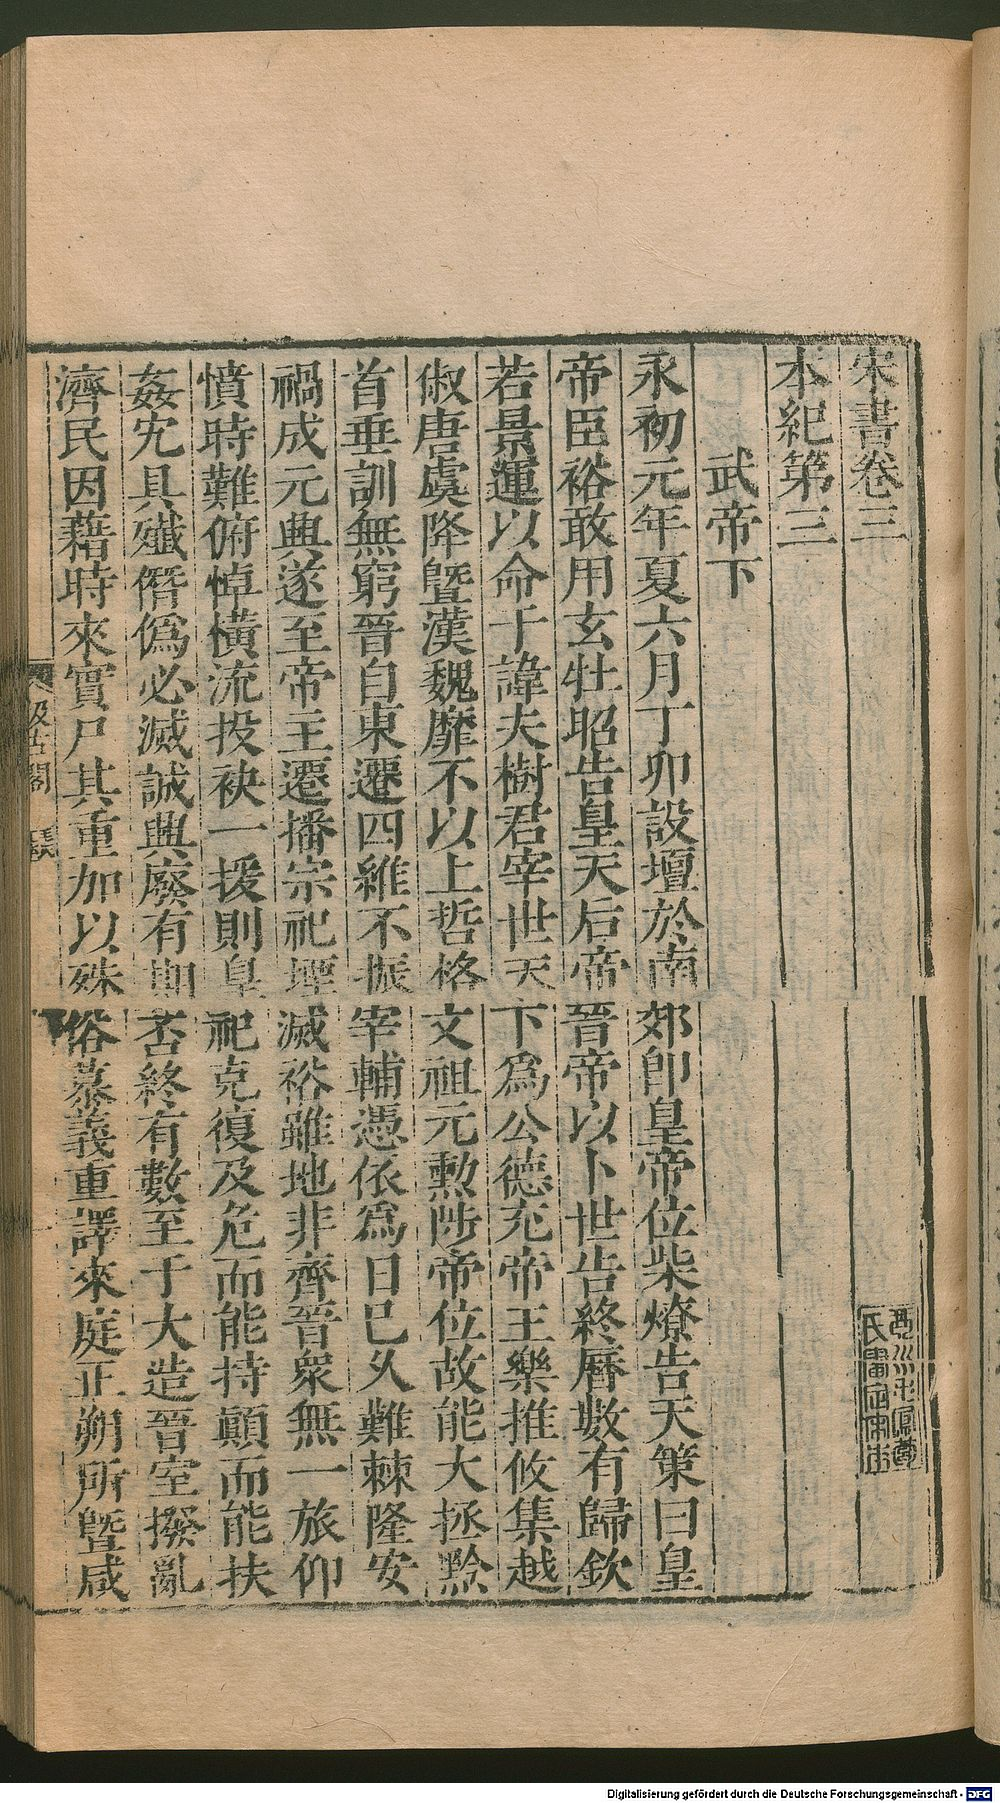 宋書卷三
本紀第三
武帝下
永初元年夏六月丁卯設壇於南郊卽皇帝位柴燎告天策曰皇
帝臣裕敢用玄牡昭告皇天后帝晉帝以卜世告終曆數有歸欽
若景運以命于諱夫樹君宰世天下爲公德充帝王樂推攸集越
俶唐虞降曁漢魏靡不以上哲格文祖元勲陟帝位故能大拯黔
首垂訓無窮晉自東遷四維不振宰輔憑依爲日已久難棘隆安
禍成元興遂至帝主遷播宗祀堙滅裕雖地非齊晉衆無一旅仰
憤時難俯悼橫流投袂一援則皇祀克復及危而能持顚而能扶
姦宄具殲僭僞必滅誠興廢有期否終有數至于大造晉室撥亂
濟民因藉時來實尸其重加以殊俗慕義重譯來庭正朔所曁咸
汲古閣
Digitalisierung gefördert durch die Deutsche Forschungsgemeinschaft - DFG